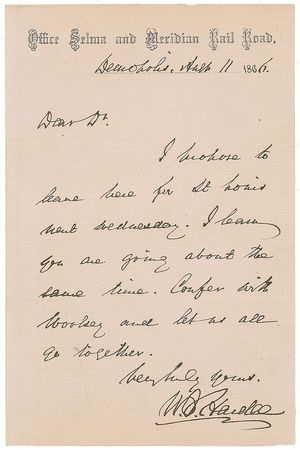 Office Selma and Meridian Rail Road,
Demopolis, Augt 11 1866.
Dear Dr.
I propose to
leave here for St Louis
next Wednesday. I learn
you are going about the
same time. Confer with
Woolsey and let us all
go together.
Very truly yours.
W. J. Hardee